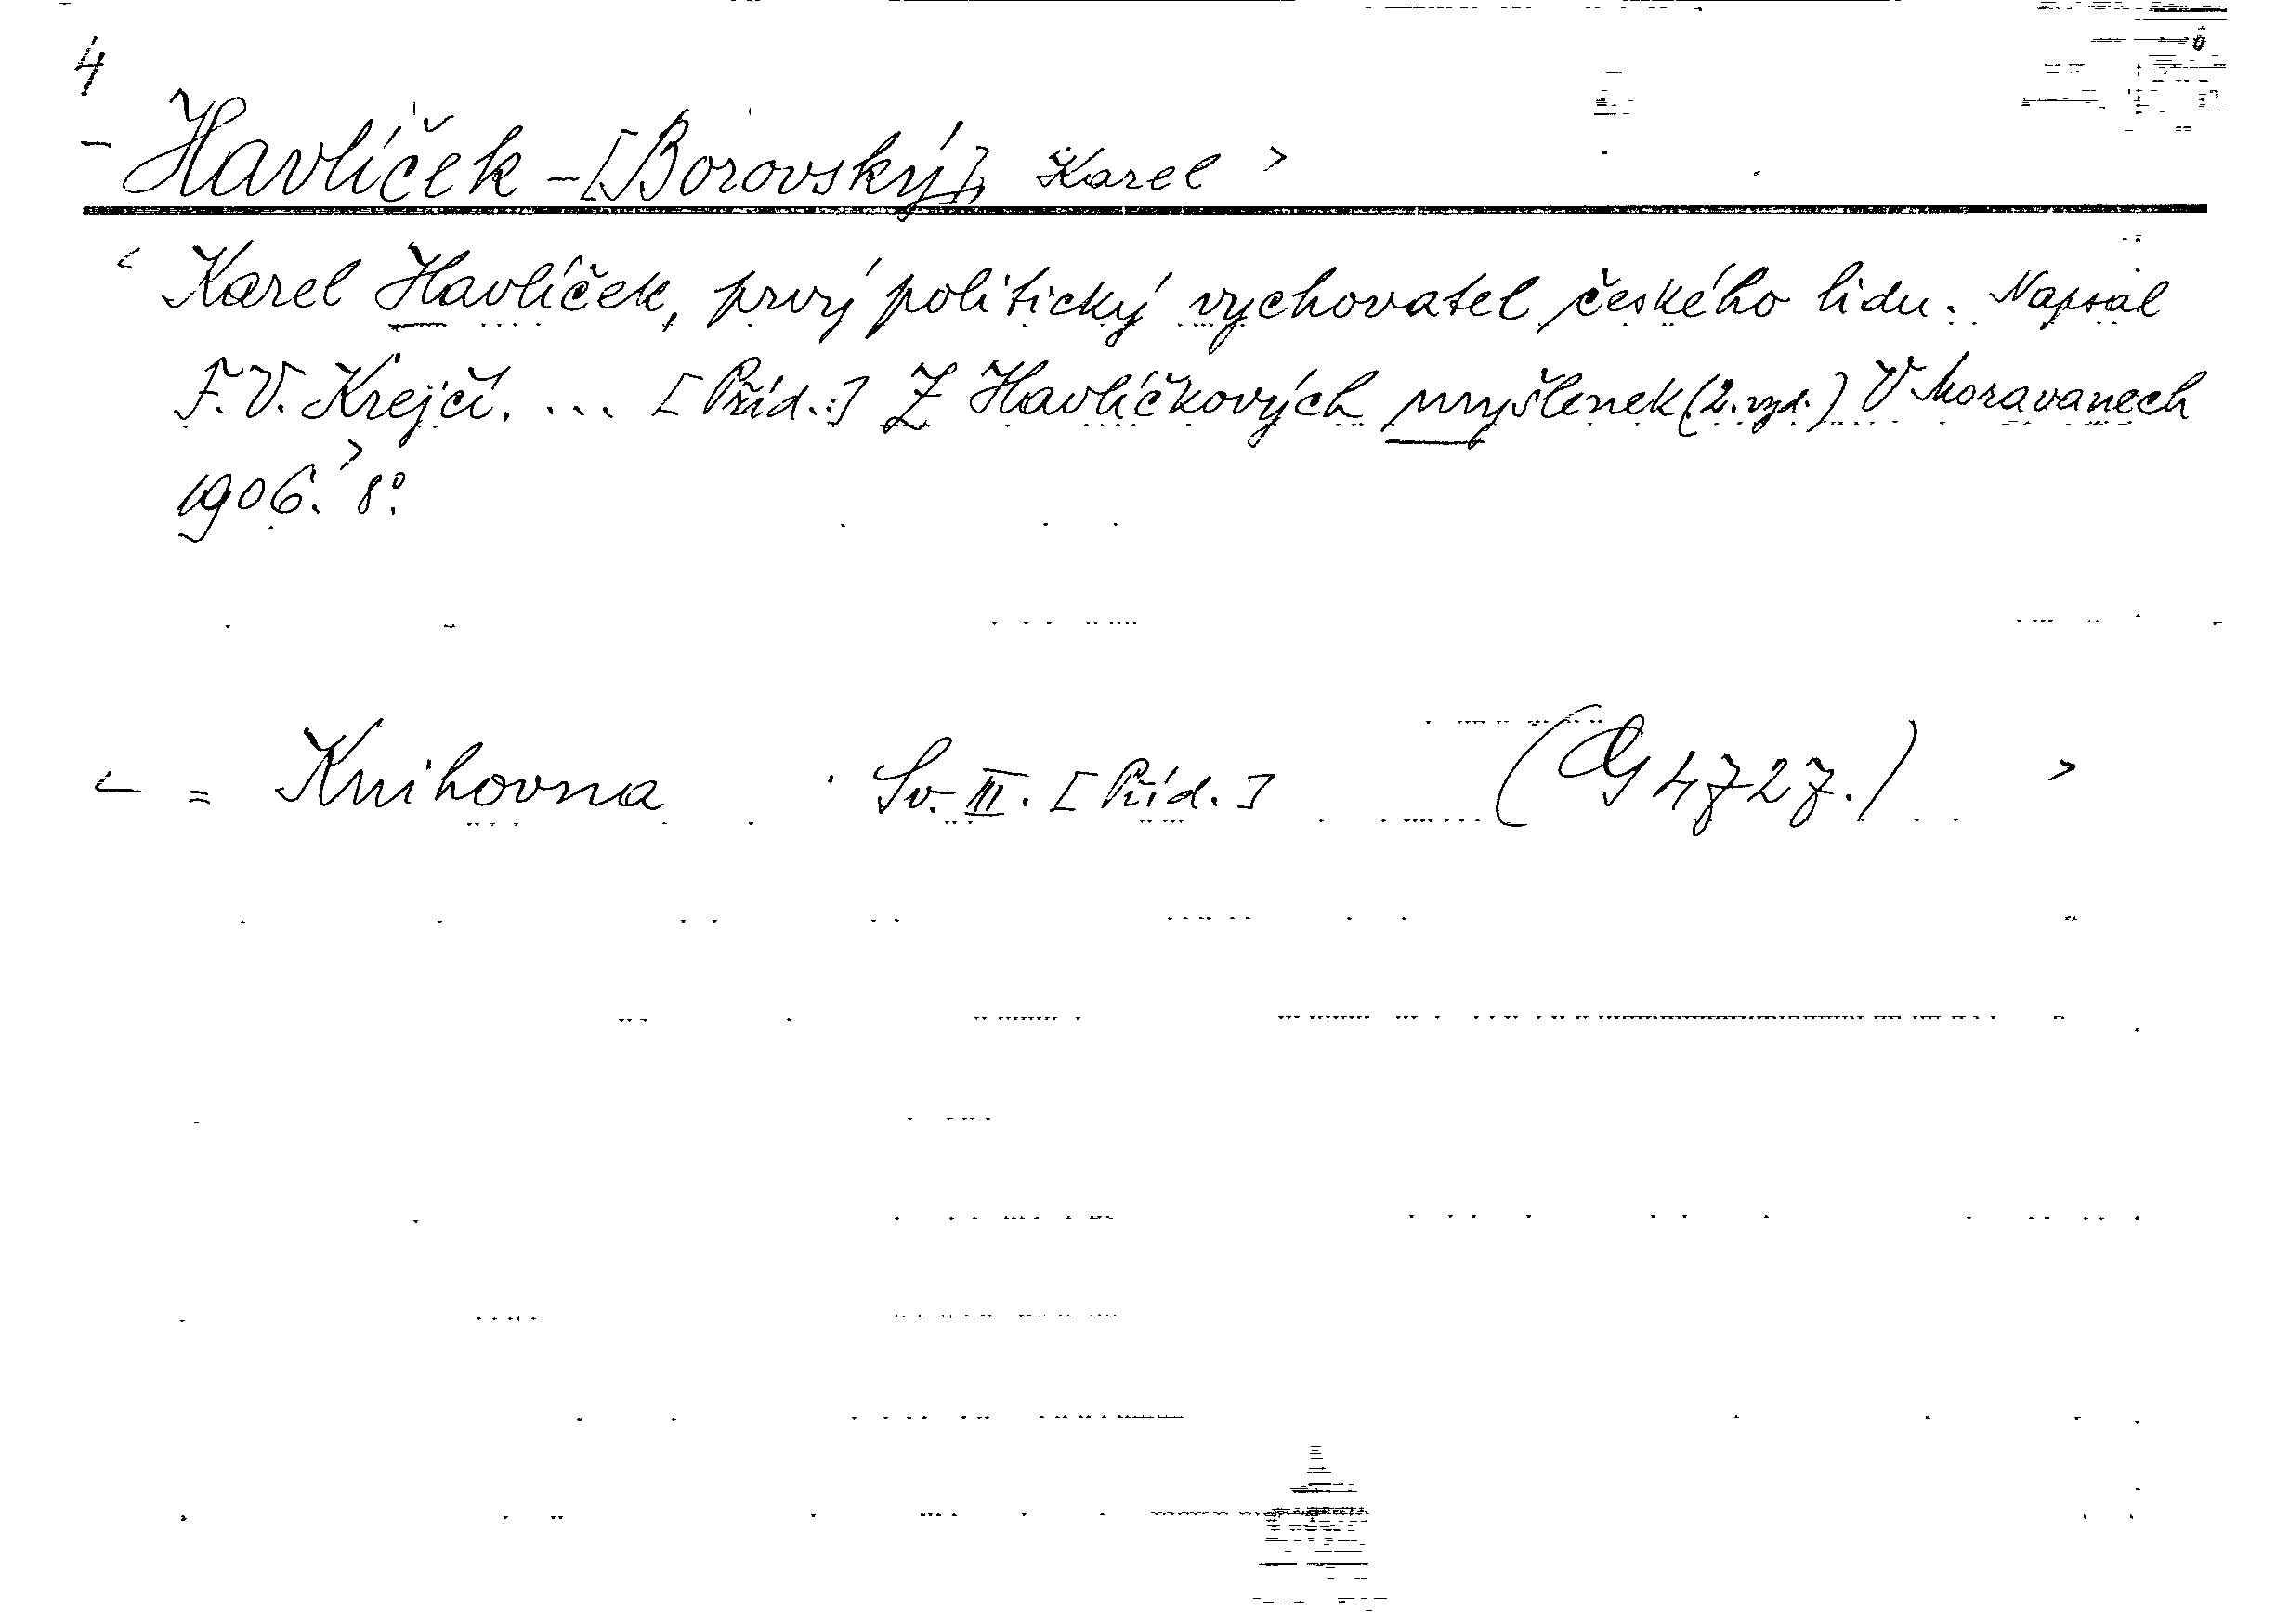 4
- Havlíček - [Borovský], Karel >
< Karel Havlíček, prvý politický vychovatel českého lidu. Napsal
F. V. Krejčí. ... [Příd.:] Z Havlíčkových myšlenek (2. vyd.) V Moravanech
1906. > 8°.
< = Knihovna . Sv. III. [Příd.] (G 4727.) >